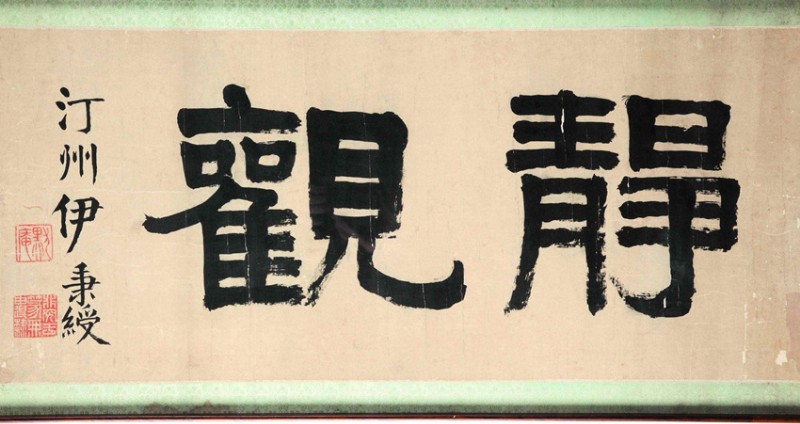 靜觀
汀州伊秉綬